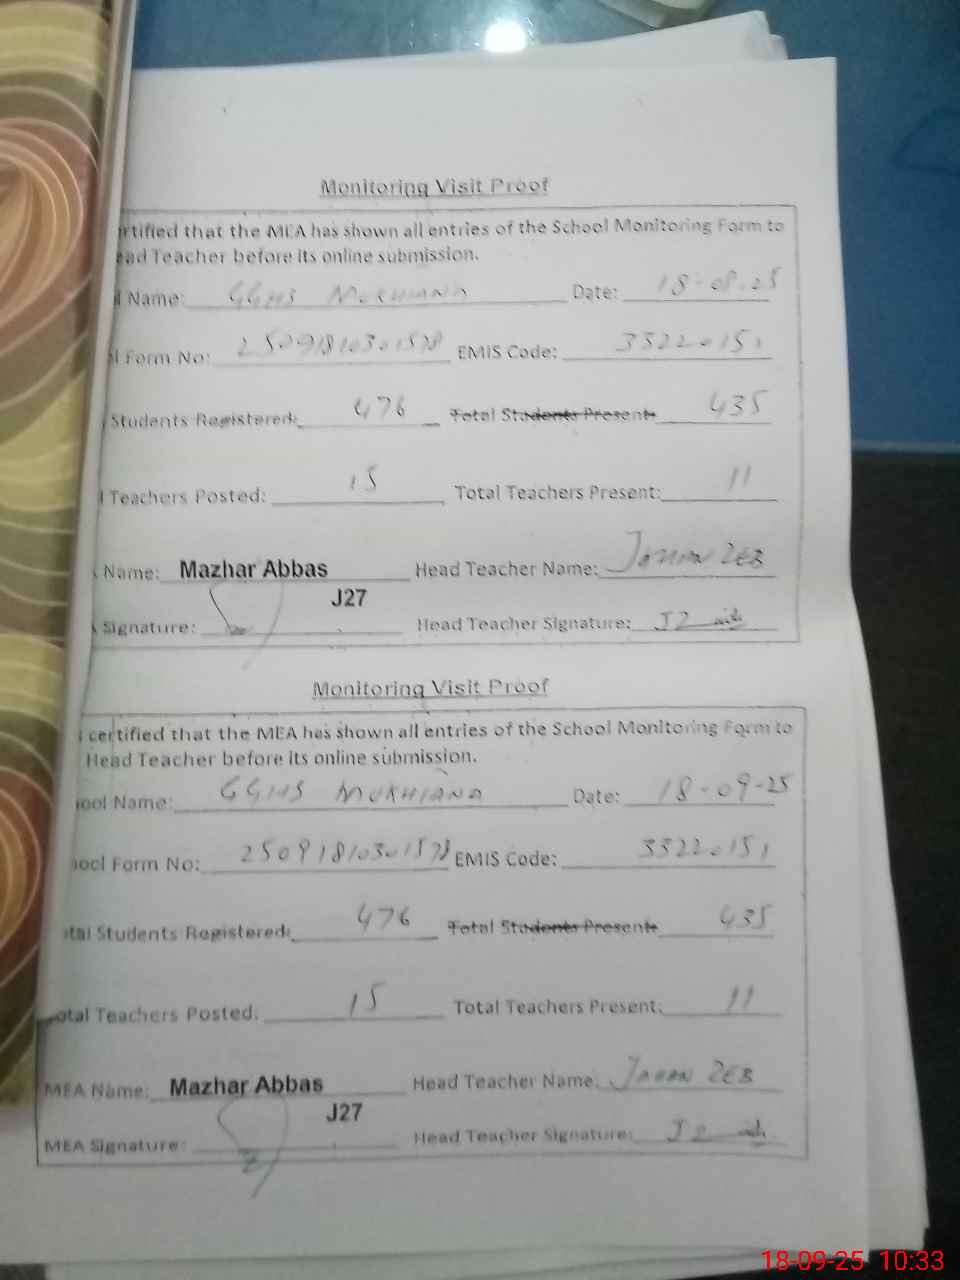 Monitoring Visit Proof
rtified that the MEA has shown all entries of the School Monitoring Form to
ead Teacher before its online submission.
l Name: GGHS MUKHIANA Date: 18-09-25
l Form No: EMIS Code: 33220151
Students Registered: 476 Total Students Present: 435
l Teachers Posted: 15 Total Teachers Present: 11
Name: Mazhar Abbas Head Teacher Name: JAHAN ZEB
J27
Signature: Head Teacher Signature: JZ
Monitoring Visit Proof
certified that the MEA has shown all entries of the School Monitoring Form to
Head Teacher before its online submission.
ool Name: GGHS MUKHIANA Date: 18-09-25
ool Form No: EMIS Code: 33220151
tal Students Registered: 476 Total Students Present: 435
otal Teachers Posted: 15 Total Teachers Present: 11
MEA Name: Mazhar Abbas Head Teacher Name: JAHAN ZEB
J27
MEA Signature: Head Teacher Signature: JZ
18-09-25 10:33